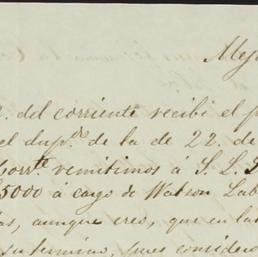 Mej
. del corriente recibi el p
el dup.do de la de 22. de
Corr.te remitimos á S. L.
5000 á cargo de Watson Lab
as, aunque creo, que en la
su termino, pues consider